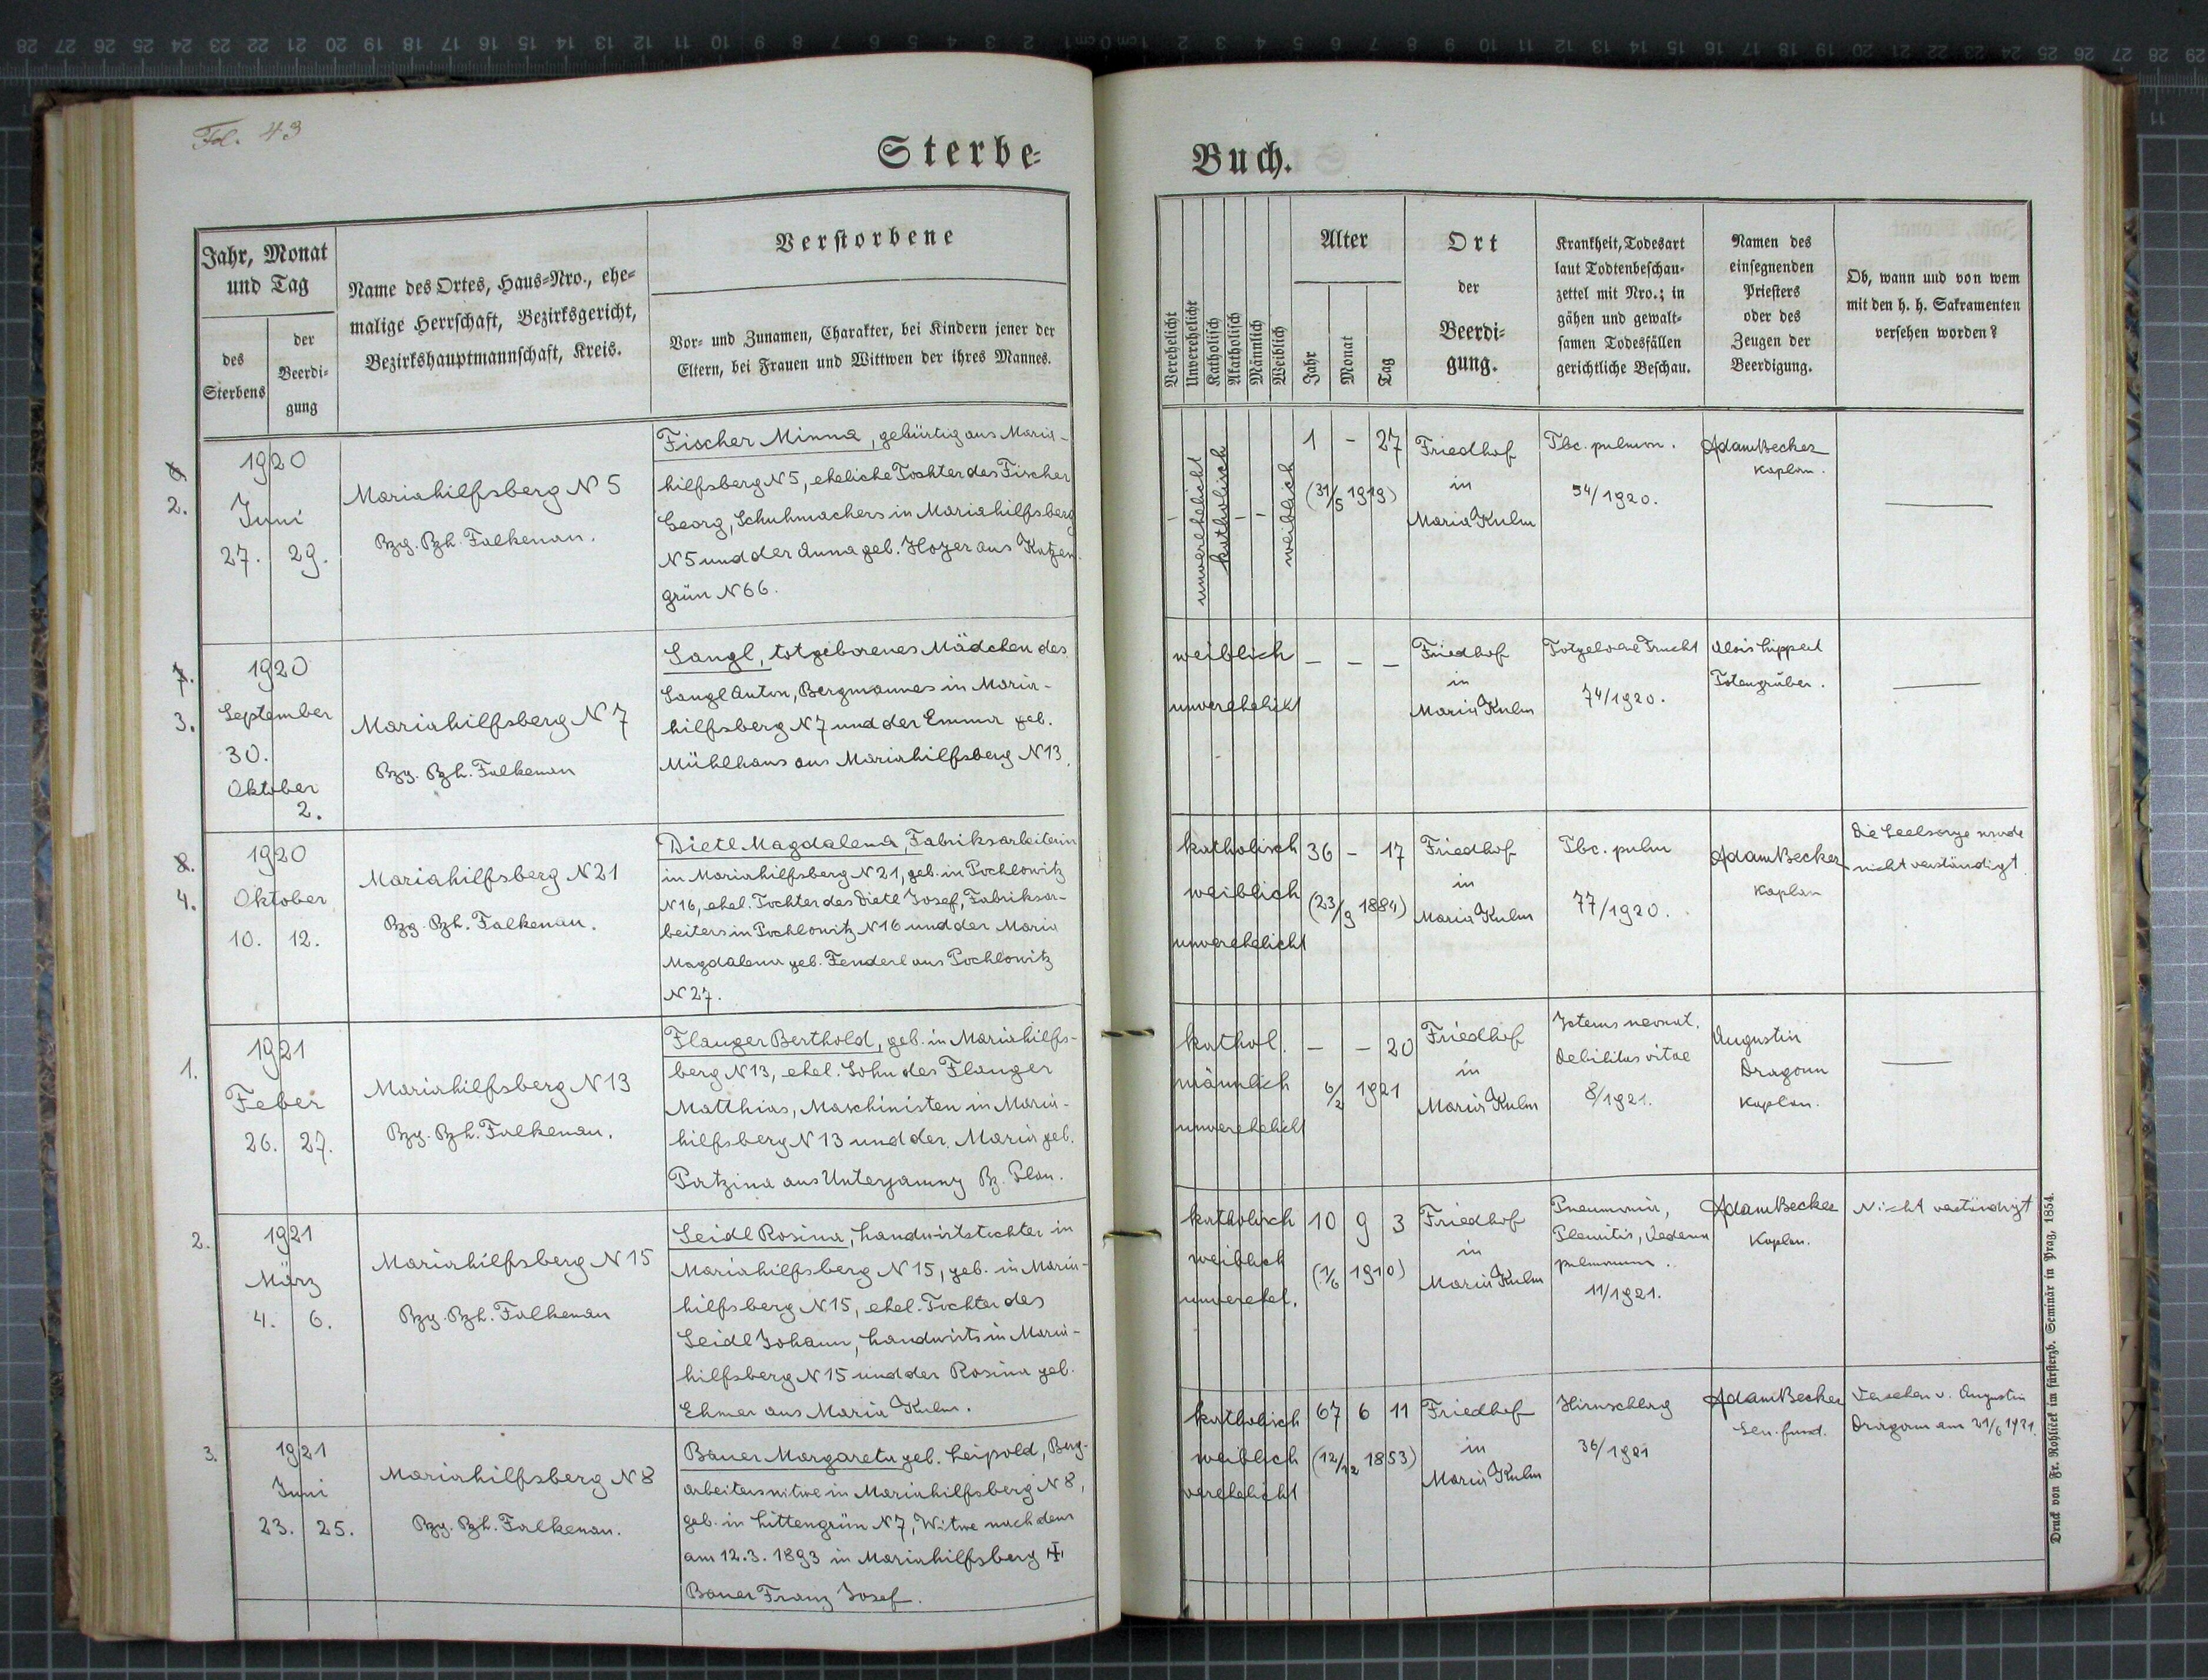 Fol. 43
Sterbe-
Jahr, Monat
und Tag
des
Sterbens
der
Beerdi-
gung
Name des Ortes, Haus-Nro., ehe-
malige Herrschaft, Bezirksgericht,
Bezirkshauptmannschaft, Kreis.
Verstorbene
Vor- und Zunamen, Charakter, bei Kindern jener der
Eltern, bei Frauen und Wittwen der ihres Mannes.
2.
1920
Juni
27. 29.
Mariahilfsberg N 5
Bzg. Bzh. Falkenau.
Fischer Minna, gebürtig aus Maria-
hilfsberg N 5, eheliche Tochter des Fischer
Georg, Schuhmachers in Mariahilfsberg
N 5 und der Anna geb. Hoyer aus Katzen-
grün N 66.
7.
3.
1920
September
30.
Oktober
2.
Mariahilfsberg N 7
Bzg. Bzh. Falkenau
Langl, totgeborenes Mädchen des
Langl Anton, Bergmannes in Maria-
hilfsberg N 7 und der Emma geb.
Mühlhans aus Mariahilfsberg N 13.
8.
4.
1920
Oktober
10. 12.
Mariahilfsberg N 21
Bzg. Bzh. Falkenau.
Dietl Magdalena, Fabriksarbeiterin
in Mariahilfsberg N 21, geb. in Pochlowitz
N 16, ehel. Tochter des Dietl Josef, Fabriksar-
beiters in Pochlowitz N 16 und der Maria
Magdalena geb. Fenderl aus Pochlowitz
N 27.
1.
1921
Feber
26. 27.
Mariahilfsberg N 13
Bzg. Bzh. Falkenau.
Flauger Berthold, geb. in Mariahilfs-
berg N 13, ehel. Sohn des Flauger
Matthias, Maschinisten in Maria-
hilfsberg N 13 und der Maria geb.
Patzina aus Unterjamny Bz. Plan.
2.
1921
März
4. 6.
Mariahilfsberg N 15
Bzg. Bzh. Falkenau
Seidl Rosina, Landwirtstochter in
Mariahilfsberg N 15, geb. in Maria-
hilfsberg N 15, ehel. Tochter des
Seidl Johann, Landwirts in Maria-
hilfsberg N 15 und der Rosina geb.
Ehmer aus Maria Kulm.
3.
1921
Juni
23. 25.
Mariahilfsberg N 8
Bzg. Bzh. Falkenau.
Bauer Margareta geb. Leipold, Berg-
arbeiterswitwe in Mariahilfsberg N 8,
geb. in Littengrün N 7, Witwe nach dem
am 12. 3. 1893 in Mariahilfsberg
Bauer Franz Josef.
Buch.
Verehelicht
Unverehelicht
Katholisch
Akatholisch
Männlich
Weiblich
Alter
Jahr
Monat
Tag
Ort
der
Beerdi-
gung.
Krankheit, Todesart
laut Todtenbeschau-
zettel mit Nro.; in
gähen und gewalt-
samen Todesfällen
gerichtliche Beschau.
Namen des
einsegnenden
Priesters
oder des
Zeugen der
Beerdigung.
Ob, wann und von wem
mit den h. h. Sakramenten
versehen worden?
- unverehelicht katholisch - - weiblich
1 - 27
(31/5 1919)
Friedhof
in
Maria Kulm
Tbc. pulmon.
54/1920.
Adam Becker
Kaplan.
weiblich
unverehelicht
- - -
Friedhof
in
Maria Kulm
Totgeborene Frucht
74/1920.
Alois Lippert
Totengräber.
katholisch
weiblich
unverehelicht
36 - 17
(23/9 1884)
Friedhof
in
Maria Kulm
Tbc. pulm
77/1920.
Adam Becker
Kaplan
Die Seelsorge wurde
nicht verständigt.
kathol.
männlich
unverehelicht
- - 20
6/2 1921
Friedhof
in
Maria Kulm
Icterus neonat.
Debilitas vitae
8/1921.
Augustin
Dragoun
Kaplan.
katholisch
weiblich
unverehel.
10 9 3
(1/6 1910)
Friedhof
in
Maria Kulm
Pneumonia,
Pleuritis, Oedema
pulmonum.
11/1921.
Adam Becker
Kaplan.
Nicht verständigt
katholisch
weiblich
verehelicht
67 6 11
(12/12 1853)
Friedhof
in
Maria Kulm
Hirnschlag
36/1921
Adam Becker
Versehen v. Augustin
Dragoun am 21/6 1921.
Druck von Fr. Rohliček im fürsterzb. Seminär in Prag, 1854.